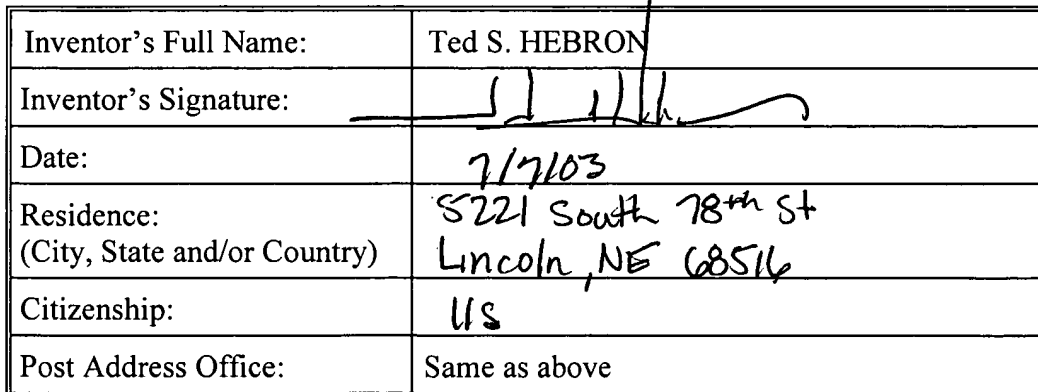 Inventor's Full Name: Ted S. HEBRON
Inventor's Signature:
Date: 7/7/03
Residence: 5221 South 78th St
(City, State and/or Country) Lincoln, NE 68516
Citizenship: US
Post Address Office: Same as above